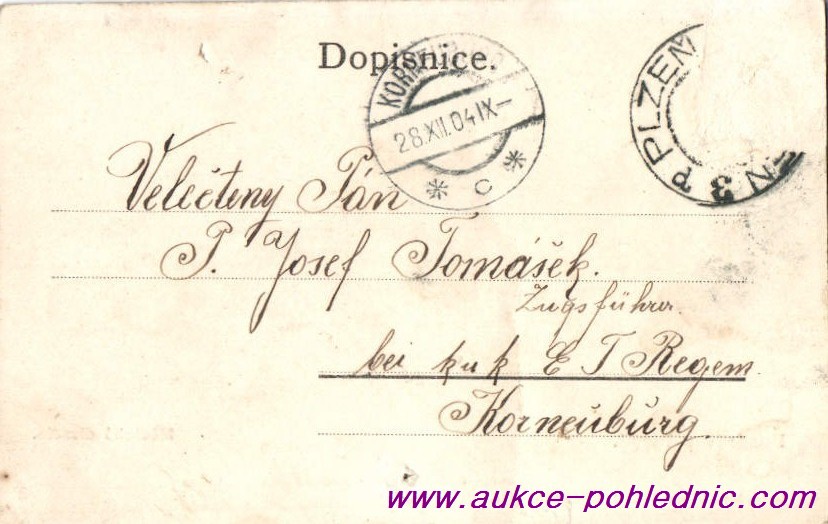 Dopisnice.
KORNEUBURG
28.XII.04 IX–
* C *
PLZEŇ 3
Velečteny Pán
P. Josef Tomášek.
Zugsführer
bei k u k E T Regem
Korneuburg.
www.aukce-pohlednic.com